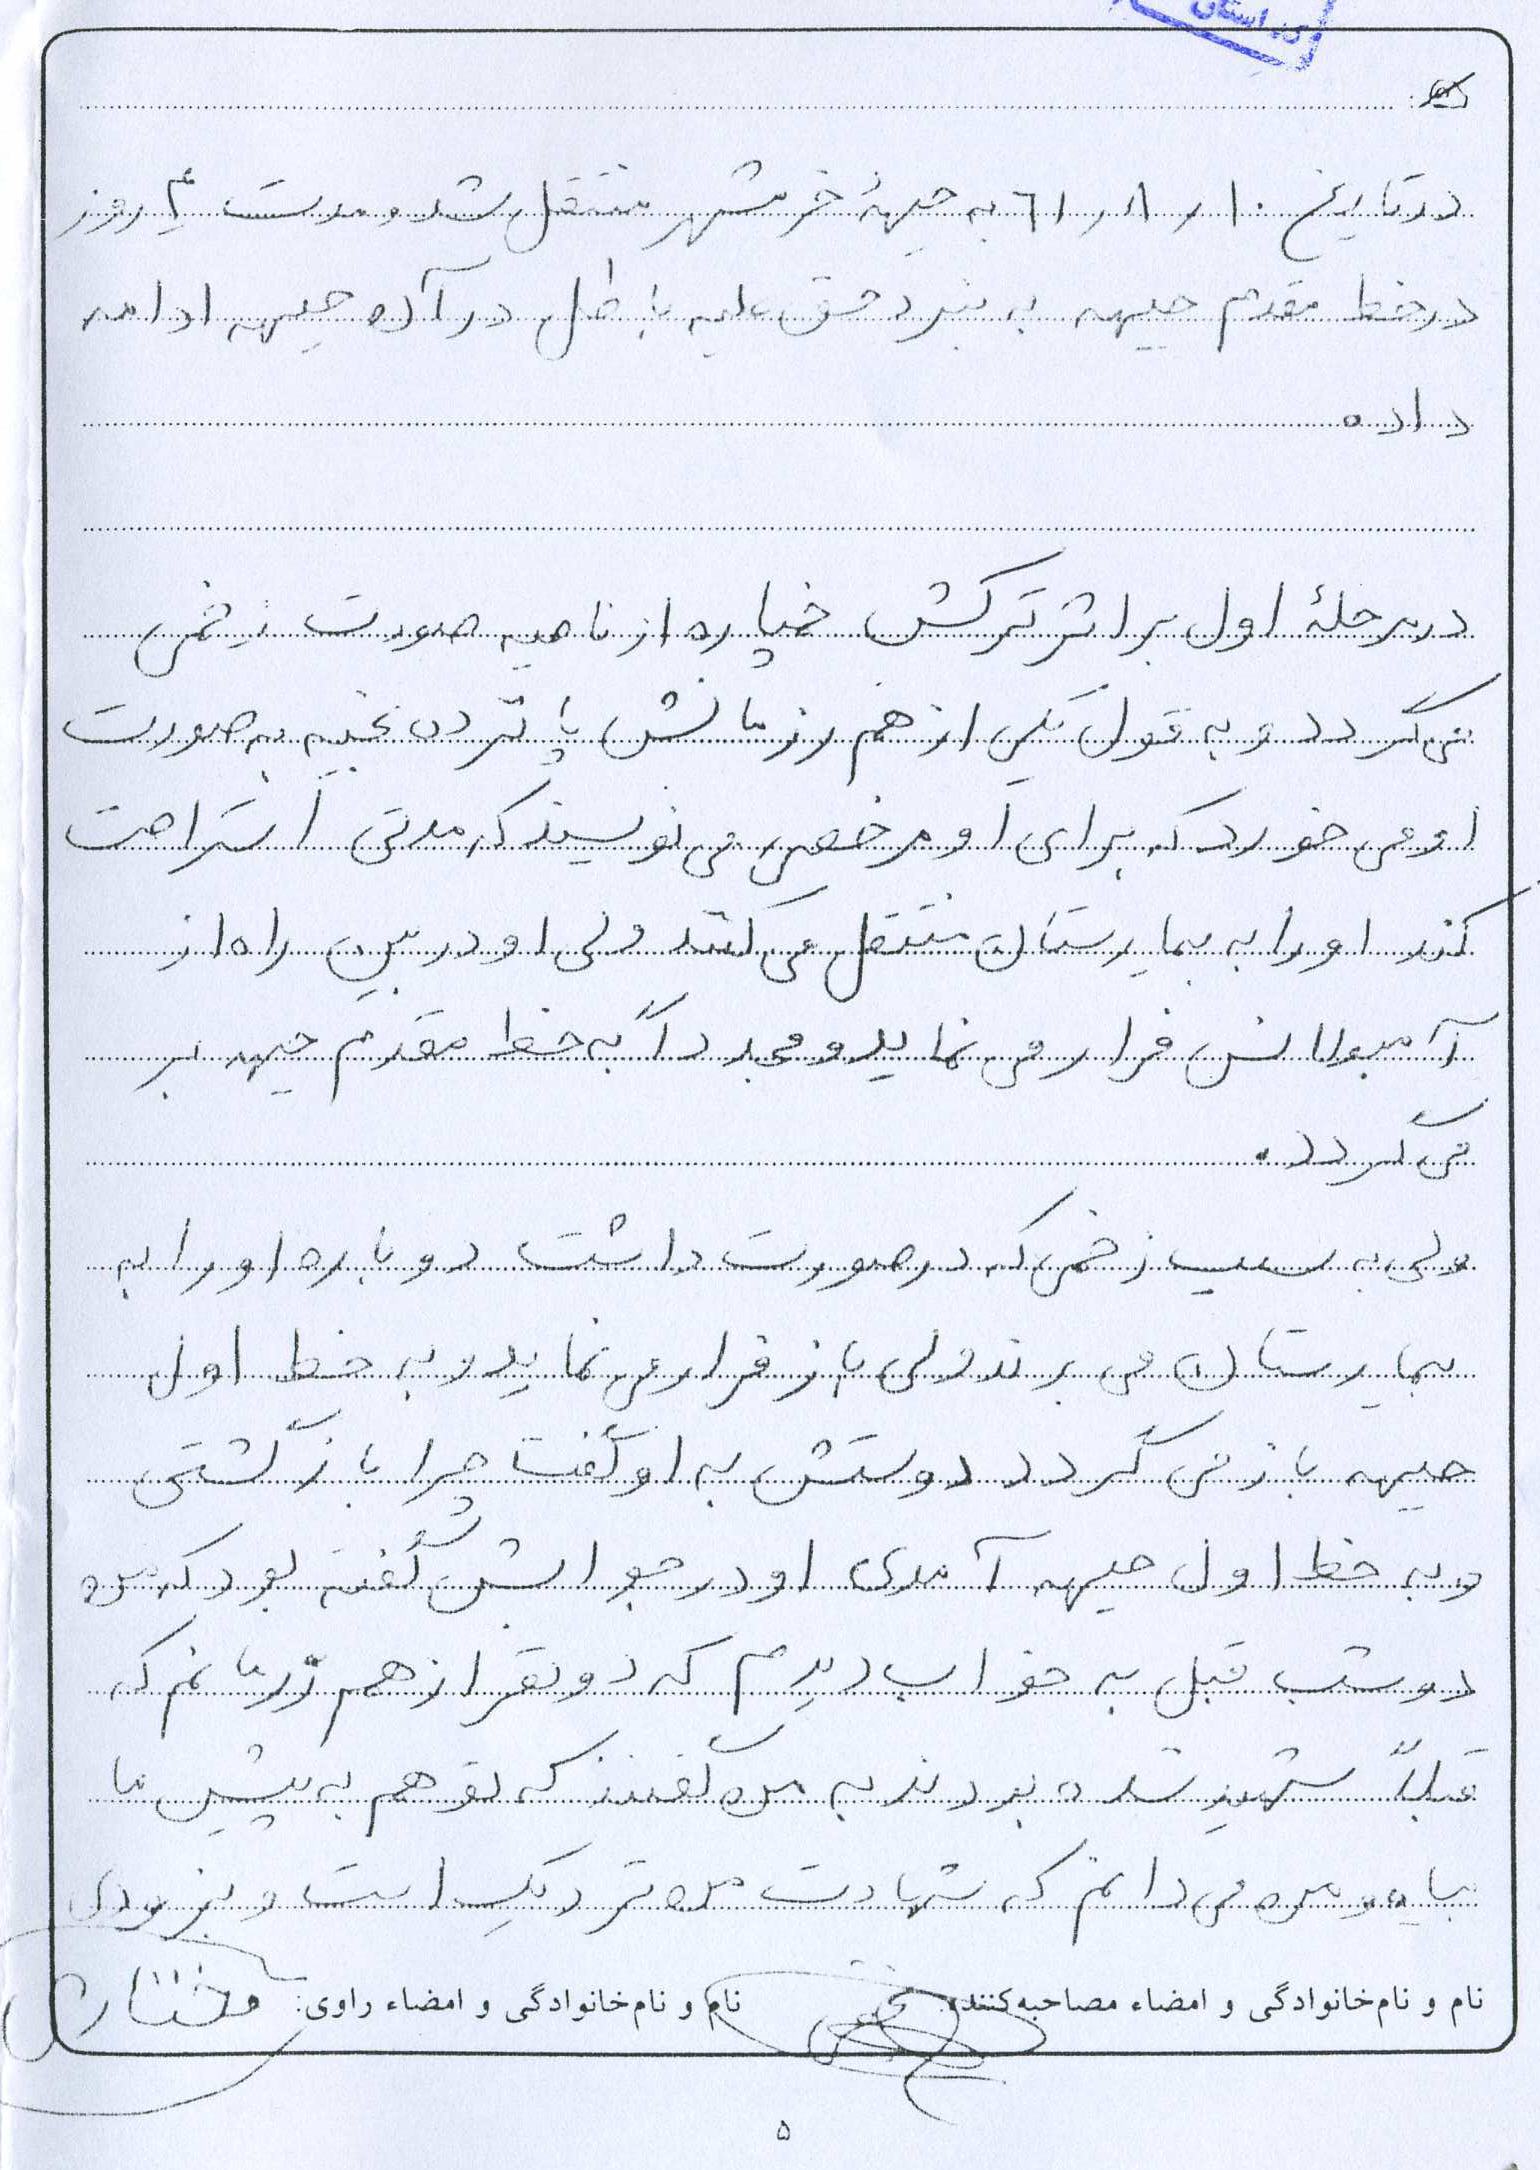 استان
در تاریخ ۱۰ ر ۸ ر ۶۱ به جبههٔ خرمشهر منتقل شد و مدت ۴ روز
در خط مقدم جبهه به نبرد حق علیه باطل در آن جبهه ادامه
داده
در مرحلهٔ اول بر اثر ترکش خمپاره از ناحیه صورت زخمی
می گردد و به قول یکی از هم رزمانش پانزده بخیه به صورت
او می خورد که برای او مرخصی می نویسند که مدتی استراحت
کند او را به بیمارستان منتقل می کنند ولی او در بین راه از
آمبولانس فرار می نماید و مجدداً به خط مقدم جبهه بر
می گردد.
ولی به سبب زخمی که در صورت داشت دوباره او را به
بیمارستان می برند ولی باز فرار می نماید و به خط اول
جبهه باز می گردد دوستش به او گفت چرا بازگشتی
و به خط اول جبهه آمدی او در جوابش گفته بود که من
دو شب قبل به خواب دیدم که دو نفر از هم رزمانم که
قبلاً شهید شده بودند به من گفتند که تو هم به پیش ما
بیا و من می دانم که شهادت من نزدیک است و بزودی
نام و نام‌خانوادگی و امضاء مصاحبه‌کننده: نام و نام‌خانوادگی و امضاء راوی:
۵